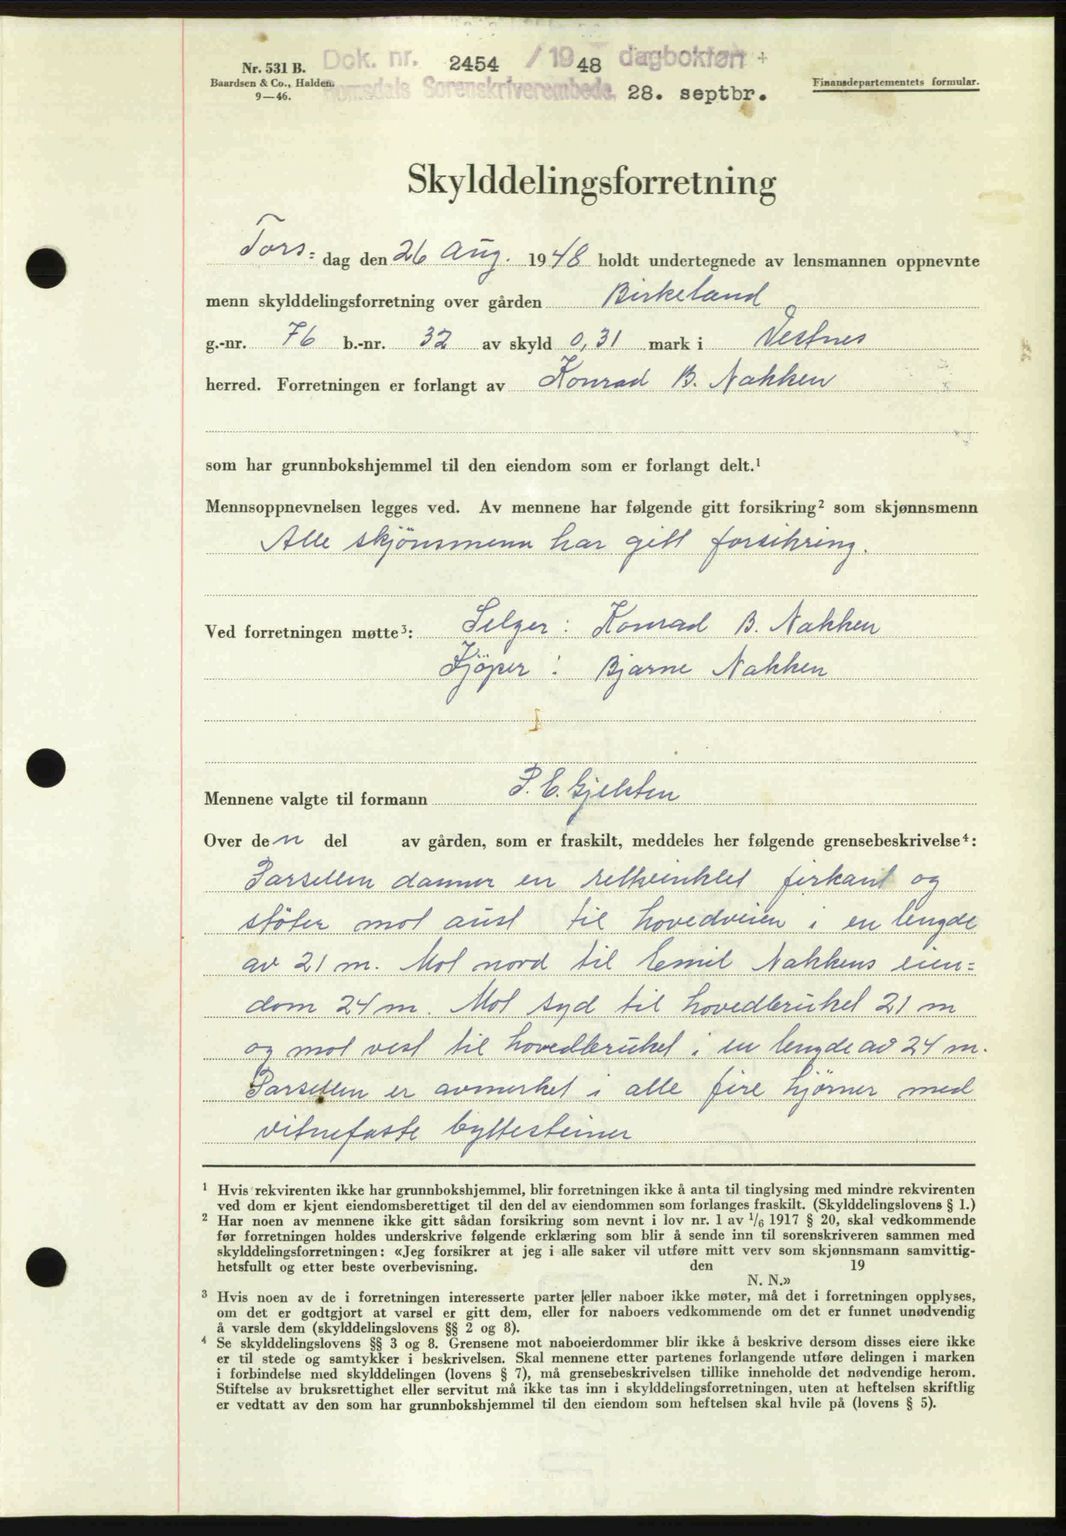 Nr. 531 B.
Baardsen & Co., Halden.
9—46.
Dok. nr. 2454 / 1948 dagbokført
Romsdals Sorenskriverembede. 28. septbr.
Finansdepartementets formular.
Skylddelingsforretning
Tors= dag den 26 Aug. 1948 holdt undertegnede av lensmannen oppnevnte
menn skylddelingsforretning over gården Birkeland
g.-nr. 76 b.-nr. 32 av skyld 0,31 mark i Vestnes
herred. Forretningen er forlangt av Konrad B. Nakken
som har grunnbokshjemmel til den eiendom som er forlangt delt.¹
Mennsoppnevnelsen legges ved. Av mennene har følgende gitt forsikring² som skjønnsmenn
Alle skjönsmenn har gitt forsikring.
Ved forretningen møtte³: Selger: Konrad B. Nakken
Kjöper: Bjarne Nakken
Mennene valgte til formann P. E. Gjelsten
Over den del av gården, som er fraskilt, meddeles her følgende grensebeskrivelse⁴:
Parsellen danner en rettvinklet firkant og
støter mot aust til hovedveien i en lengde
av 21 m. Mot nord til Emil Nakkens eien=
dom 24 m. Mot syd til hovedbruket 21 m
og mot vest til hovedbruket i en lengde av 24 m.
Parsellen er avmerket i alle fire hjørner med
vitnefaste byttesteiner
¹ Hvis rekvirenten ikke har grunnbokshjemmel, blir forretningen ikke å anta til tinglysing med mindre rekvirenten
ved dom er kjent eiendomsberettiget til den del av eiendommen som forlanges fraskilt. (Skylddelingslovens § 1.)
² Har noen av mennene ikke gitt sådan forsikring som nevnt i lov nr. 1 av 1/6 1917 § 20, skal vedkommende
før forretningen holdes underskrive følgende erklæring som blir å sende inn til sorenskriveren sammen med
skylddelingsforretningen: «Jeg forsikrer at jeg i alle saker vil utføre mitt verv som skjønnsmann samvittig-
hetsfullt og etter beste overbevisning. den 19
N. N.»
³ Hvis noen av de i forretningen interesserte parter eller naboer ikke møter, må det i forretningen opplyses,
om det er godtgjort at varsel er gitt dem, eller for naboers vedkommende om det er funnet unødvendig
å varsle dem (skylddelingslovens §§ 2 og 8).
⁴ Se skylddelingslovens §§ 3 og 8. Grensene mot naboeierdommer blir ikke å beskrive dersom disses eiere ikke
er til stede og samtykker i beskrivelsen. Skal mennene etter partenes forlangende utføre delingen i marken
i forbindelse med skylddelingen (lovens § 7), må grensebeskrivelsen tillike inneholde det nødvendige herom.
Stiftelse av bruksrettighet eller servitut må ikke tas inn i skylddelingsforretningen, uten at heftelsen skriftlig
er vedtatt av den som har grunnbokshjemmel til den eiendom som heftelsen skal hvile på (lovens § 5).